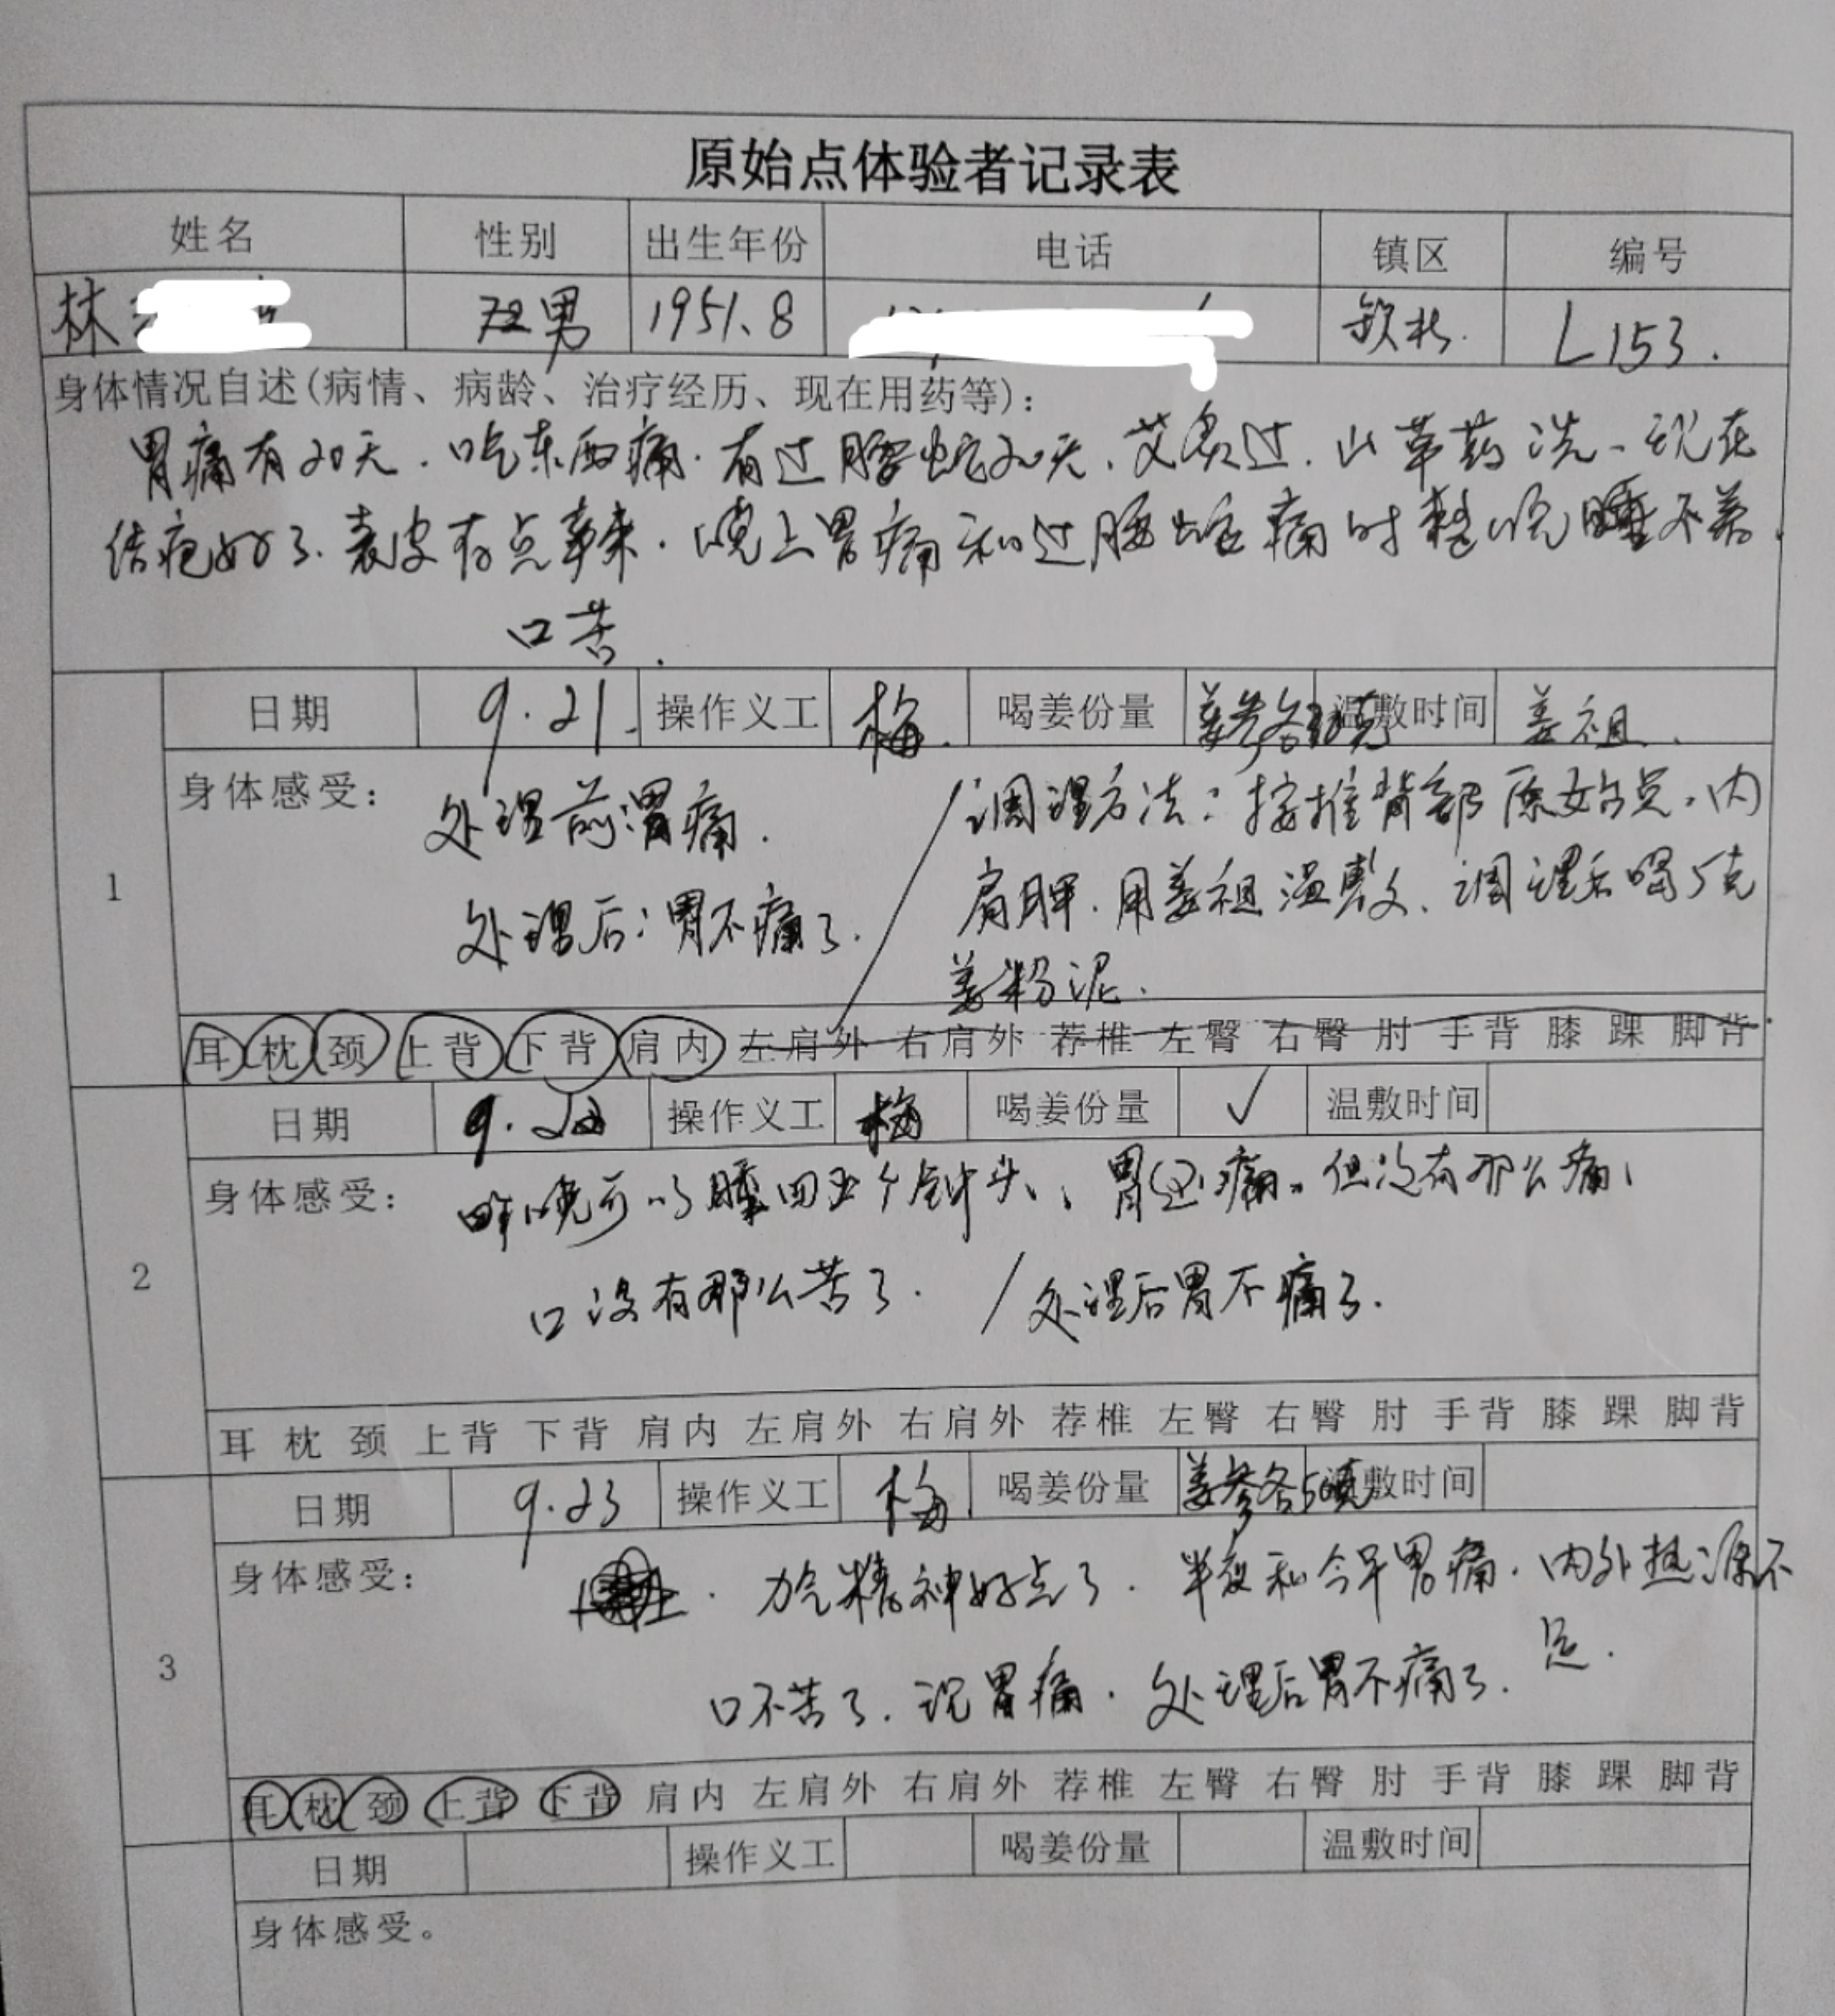 原始点体验者记录表
姓名 性别 出生年份 电话 镇区 编号
林 男 1951.8 钦北. L153.
身体情况自述(病情、病龄、治疗经历、现在用药等):
胃痛有20天.吃东西痛.有过腰蛇20天.艾灸过.山草药洗、现在
结疤好了.表皮有点辣.晚上胃痛和过腰蛇痛时整晚睡不着.
口苦.
1 日期 9.21. 操作义工 梅. 喝姜份量 姜参各 克 温敷时间 姜祖.
身体感受:
处理前胃痛.
处理后:胃不痛了.
/调理方法:按推背部原始点.内
肩胛.用姜祖温敷.调理后喝5克
姜粉泥.
耳 枕 颈 上背 下背 肩内 左肩外 右肩外 荐椎 左臀 右臀 肘 手背 膝 踝 脚背
2 日期 9.22 操作义工 梅 喝姜份量 ✓ 温敷时间
身体感受: 昨晚可以睡四五个钟头,胃还痛。但没有那么痛、
口没有那么苦了. /处理后胃不痛了.
耳 枕 颈 上背 下背 肩内 左肩外 右肩外 荐椎 左臀 右臀 肘 手背 膝 踝 脚背
3 日期 9.23 操作义工 梅 喝姜份量 姜参各50克 温敷时间
身体感受: 力气精神好点了.半夜和今早胃痛.内外热源不
足.
口不苦了.现胃痛.处理后胃不痛了.
耳 枕 颈 上背 下背 肩内 左肩外 右肩外 荐椎 左臀 右臀 肘 手背 膝 踝 脚背
日期 操作义工 喝姜份量 温敷时间
身体感受。